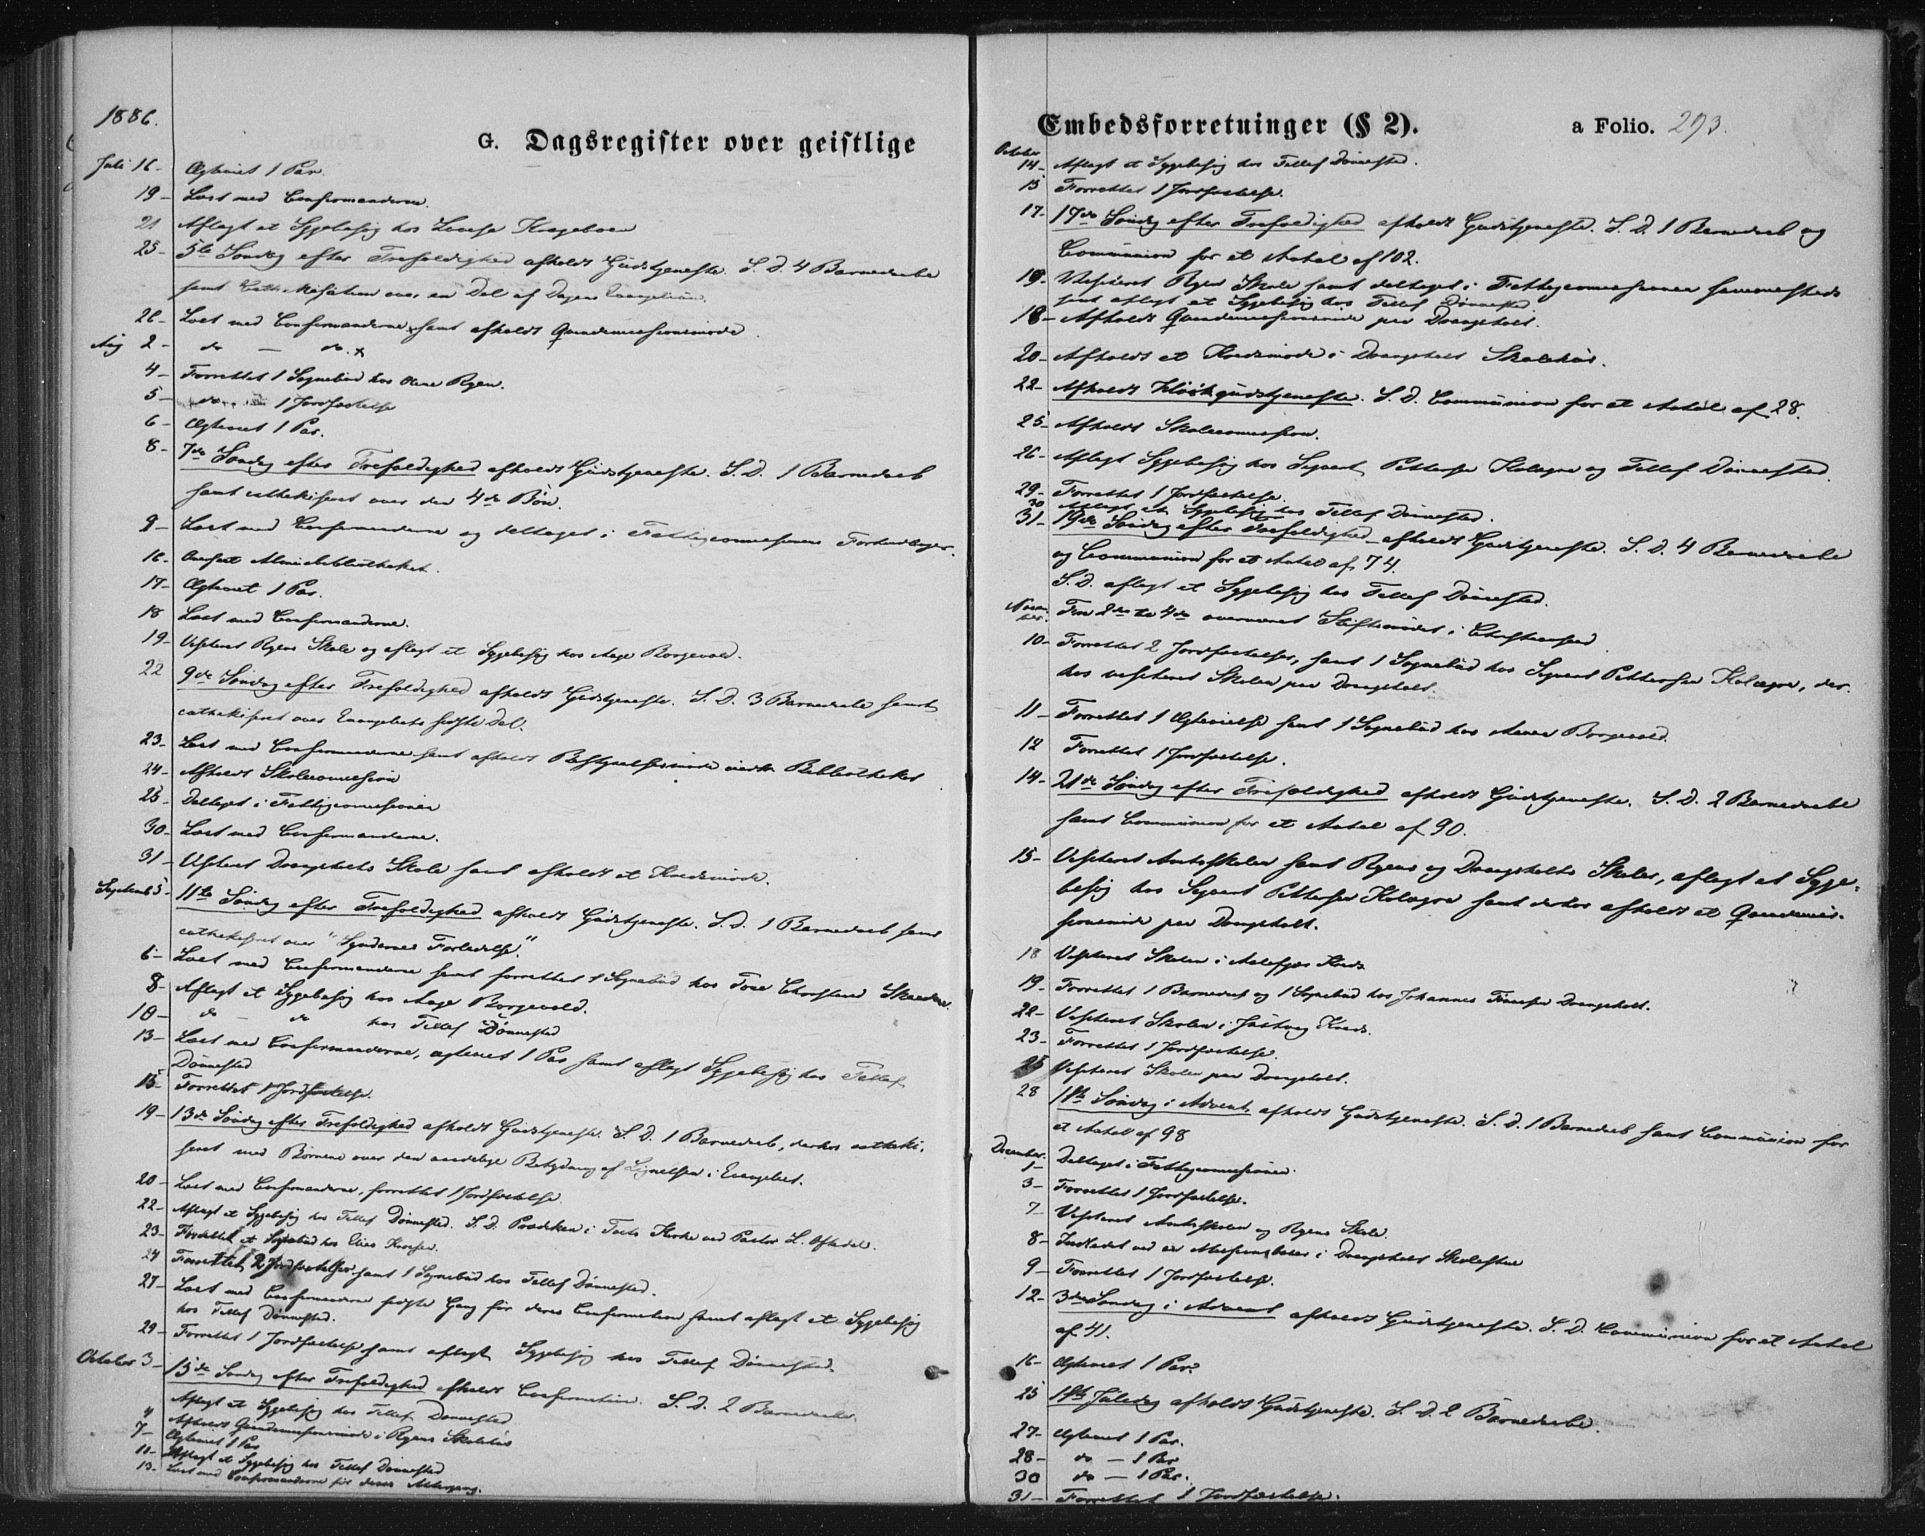 1886.
G. Dagsregister over geistlige
Juli 16- Ægteviet 1 Par.
19- Læst med Confirmanderne.
21 Aflagt et Sygebesøg hos
25- 5te Søndag efter Trefoldighed afholdt Gudstjeneste. S. D. 4 Barnedaab
samt over en Del af Dagens Evangelium.
26- Læst med Confirmanderne samt afholdt Qvindemissionsmøde.
Aug 2- do — do.
4- Forrettet 1 Sognebud hos Rgen.
5- do 1 Jordfæstelse
6- Ægteviet 1 Par.
8- 7de Søndag efter Trefoldighed afholdt Gudstjeneste. S. D. 1 Barnedaab
samt cathekiseret over den 4de Bøn.
9- Læst med Confirmanderne og deltaget i Fattigcommissionens Forhandlinger.
16- Almuebibliotheket.
17- Ægteviet 1 Par.
18 Læst med Confirmanderne.
19- Visiteret Rgens Skole og aflagt et Sygebesøg hos Aage Borgevold.
22 9de Søndag efter Trefoldighed afholdt Gudstjeneste. S. D. 3 Barnedaab samt
cathekiseret over Evangeliets sidste Del.
23- Læst med Confirmanderne samt afholdt Bestyrelsesmøde Bibliotheket
24- Afholdt Skolecommission
25 Deltaget i Fattigcommissionen
30- Læst med Confirmanderne.
31- Visiteret Drangsholts Skole samt afholdt et Kredsmøde.
September 5- 11te Søndag efter Trefoldighed afholdt Gudstjeneste. S. D. 1 Barnedaab samt
cathekiseret over "Syndernes Forladelse".
6- Læst med Confirmanderne samt forrettet 1 Sognebud hos
8- Aflagt et Sygebesøg hos Aage Borgevold.
10- do — do hos Tellef Dønnestad
13- Læst med Confirmanderne, ægteviet 1 Par samt aflagt Sygebesøg hos Tellef
Dønnestad
15- Forrettet 1 Jordfæstelse.
19- 13de Søndag efter Trefoldighed afholdt Gudstjeneste. S. D. 1 Barnedaab, derhos catheki-
seret med Børnene over den aandelige Betydning af Lignelsen i Evangeliet.
20- Læst med Confirmanderne, forrettet 1 Jordfæstelse
22- Aflagt et Sygebesøg hos Tellef Dønnestad. S. D. Prædiken i Tveits Kirke ved Pastor L. Oftedal.
23- Forrettet et Sognebud hos
24 Forrettet 2 Jordfæstelser samt 1 Sognebud hos Tellef Dønnestad.
27- Læst med Confirmanderne sidste Gang før deres Confirmation samt aflagt et Sygebesøg
hos Tellef Dønnestad.
29- Forrettet 1 Jordfæstelse samt aflagt Sygebesøg hos Tellef Dønnestad.
October 3- 15de Søndag efter Trefoldighed afholdt Confirmation. S. D. 2 Barnedaab.
Aflagt et Sygebesøg hos Tellef Dønnestad
4 Afholdt Qvindemissionsmøde i Rgens Skolehus
7- Ægteviet 1 Par
11- Aflagt et Sygebesøg hos Tellef Dønnestad
13- Læst med Confirmanderne før deres Altergang.
Embedsforretninger (§ 2).
a Folio. 293.
October
14- Aflagt et Sygebesøg hos Tellef Dønnestad.
15 Forrettet 1 Jordfæstelse.
17- 17de Søndag efter Trefoldighed afholdt Gudstjeneste. S. D. 1 Barnedaab og
Communion for et Antal af 102.
19- Visiteret Rgens Skole samt deltaget i Fattigcommissionen sammesteds
samt aflagt et Sygebesøg hos Tellef Dønnestad
18- Afholdt Qvindemissionsmøde paa Drangsholt.
20- Afholdt et Kredsmøde i Drangsholts Skolehus.
22- Afholdt Høstgudstjeneste. S. D. Communion for et Antal af 28.
25- Afholdt Skolecommission.
26- Aflagt Sygebesøg hos Sigvart Pettersen Kalagre og Tellef Dønnestad.
29- Forrettet 1 Jordfæstelse.
30 Aflagt et Sygebesøg hos Tellef Dønnestad.
31- 19de Søndag efter Trefoldighed afholdt Gudstjeneste. S. D. 4 Barnedaab
og Communion for et Antal af 74.
S. D. aflagt et Sygebesøg hos Tellef Dønnestad.
Novem-
ber. Fra 2den til 4de overværet Stiftsmødet i Christianssand
10- Forrettet 2 Jordfæstelser, samt 1 Sognebud hos Sigvart Pettersen Kalagre, der-
hos visiteret Skolen paa Drangsholt.
11- Forrettet 1 Ægtevielse samt 1 Sognebud hos Borgevold.
12 Forrettet 1 Jordfæstelse.
14- 21de Søndag efter Trefoldighed afholdt Gudstjeneste. S. D. 2 Barnedaab
samt Communion for et Antal af 90.
15- Visiteret Amtsskolen samt Rgens og Drangsholts Skoler, aflagt et Syge-
besøg hos Sigvart Pettersen Kalagre samt derhos afholdt et Qvindemis-
sionsmøde paa Drangsholt.
18 Visiteret Skolen i Kreds
19- Forrettet 1 Barnedaab og 1 Sognebud hos Johannes Drangsholt.
22- Visiteret Skolen i Justvig Kreds.
23- Forrettet 1 Jordfæstelse.
25 Visiteret Skolen paa Drangsholt.
28 1ste Søndag i Advent afholdt Gudstjeneste. S. D. 1 Barnedaab samt Communion for
et Antal af 98
December.
1- Deltaget i Fattigcommissionen.
3- Forrettet 1 Jordfæstelse.
7- Visiteret Amtsskolen og Rgens Skole.
8- Indledet ved en Missionsbasar i Drangsholts Skolestue
9- Forrettet 1 Jordfæstelse.
12- 3die Søndag i Advent afholdt Gudstjeneste. S. D. Communion for et Antal
af 41.
16- Ægteviet 1 Par.
25 1ste Juledag afholdt Gudstjeneste. S. D. 2 Barnedaab.
27- Ægteviet 1 Par.
28- do — 1 Par
30 do — 1 Par.
31- Forrettet 1 Jordfæstelse.